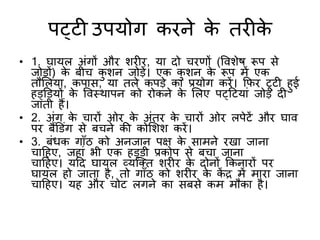 पट्टी उपयोग करने के तरीके
• 1. घायल अंगों और शरीर, या दो चरणों (विशेष रूप से
जोड़ों) के बीच कुशन जोड़ें। एक कुशन के रूप में एक
तौलिया, कपास, या तले कपड़े का प्रयोग करें। फिर टूटी हुई
हड्डियों के विस्थापन को रोकने के लिए पट्टियां जोड़ दी
जाती हैं।
• 2. अंग के चारों ओर के अंतर के चारों ओर लपेटें और घाव
पर बैंडिंग से बचने की कोशिश करें।
• 3. बंधक गाँठ को अनजान पक्ष के सामने रखा जाना
चाहिए, जहां भी एक हड्डी प्रकोप से बचा जाना
चाहिए। यदि घायल व्यक्ति शरीर के दोनों किनारों पर
घायल हो जाता है, तो गाँठ को शरीर के केंद्र में मारा जाना
चाहिए। यह और चोट लगने का सबसे कम मौका है।